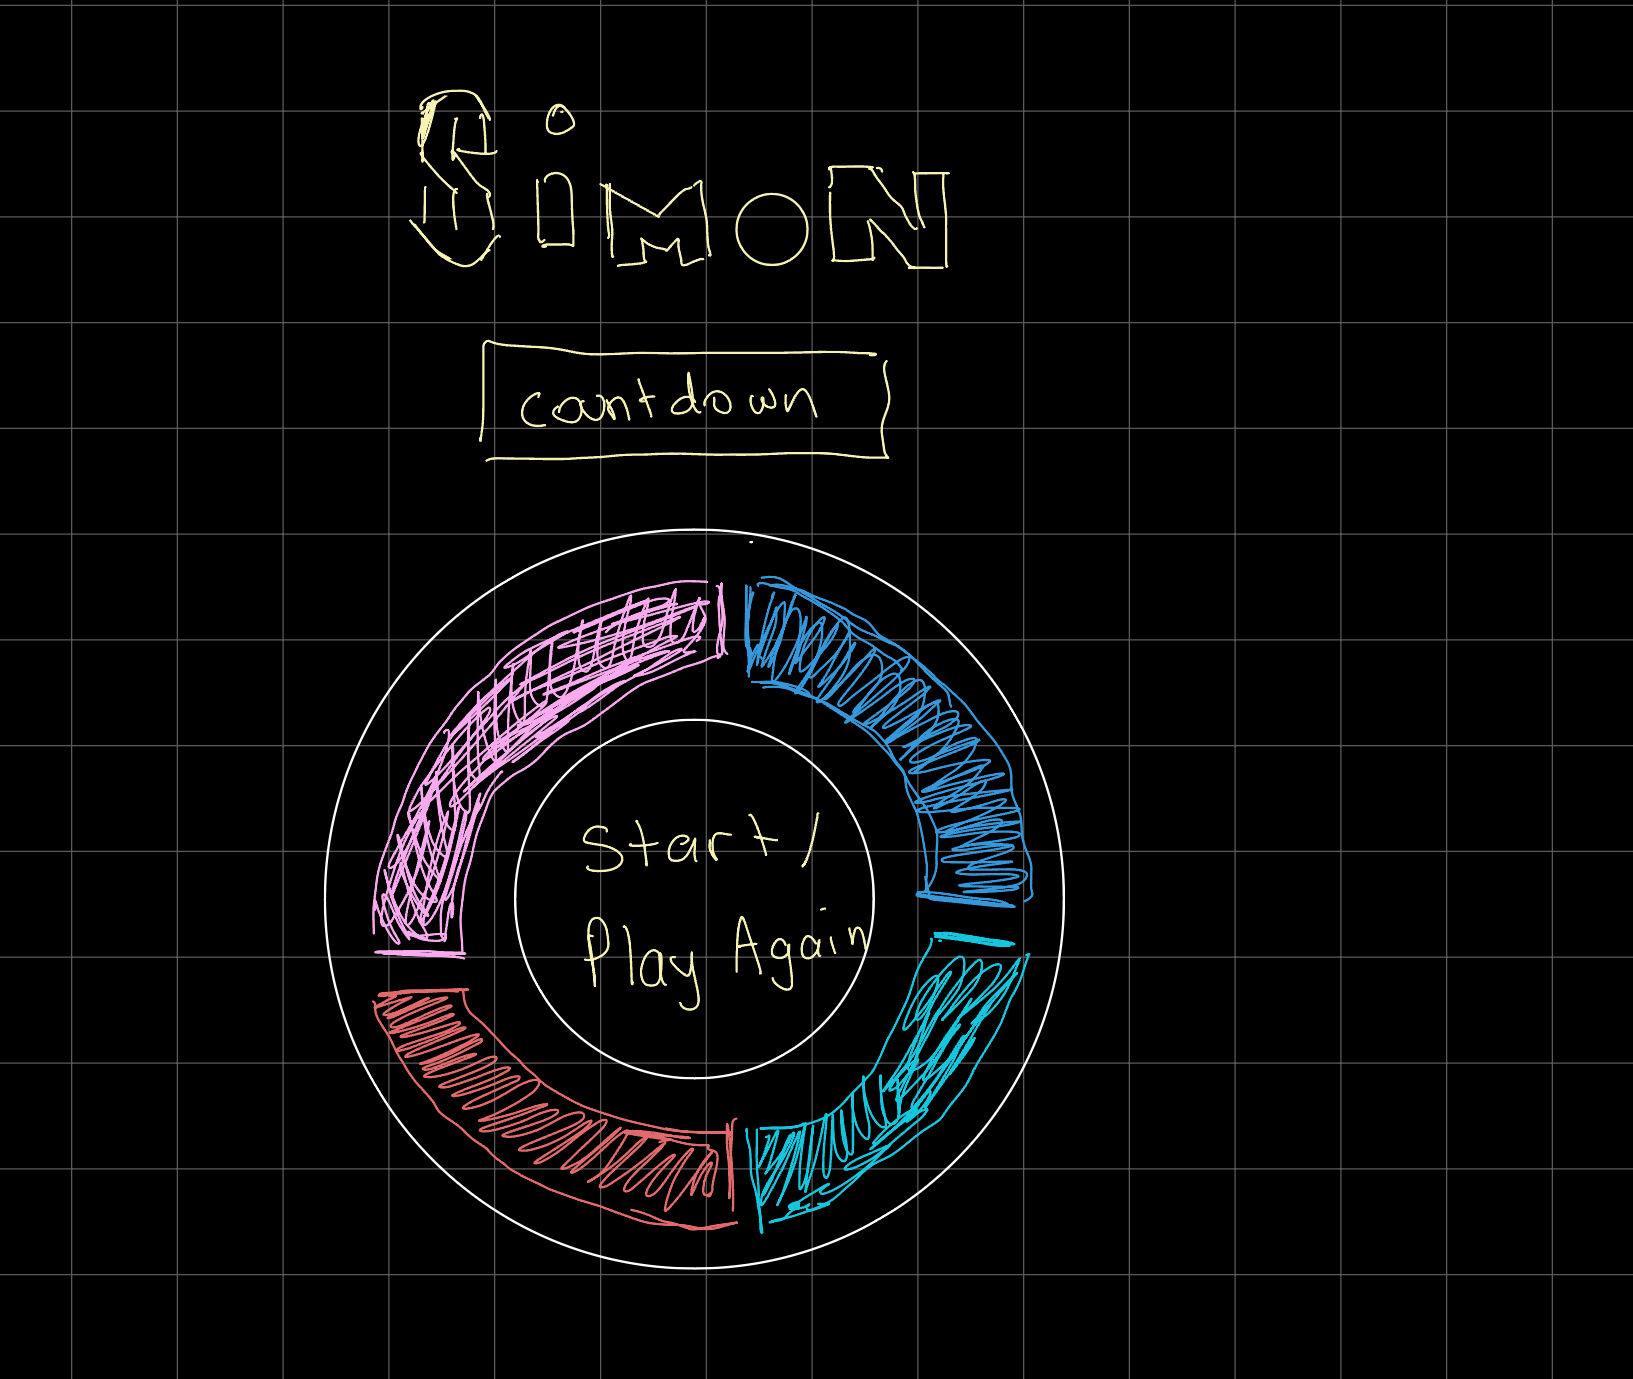 SiMoN
countdown
Start /
Play Again